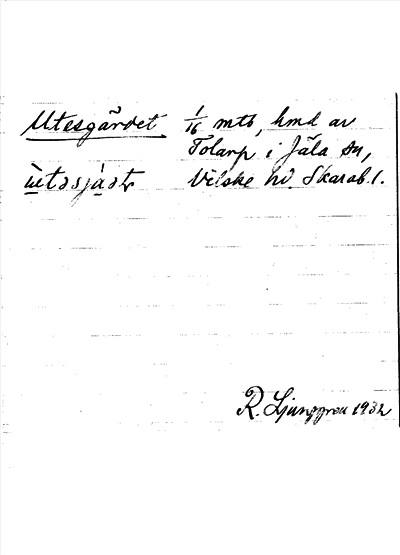 Utesgärdet 1/16 mtl, hmd av
Tolarp i Jäla sn,
ùtəsjàət Vilske hd Skarab. l.
R. Ljunggren 1932